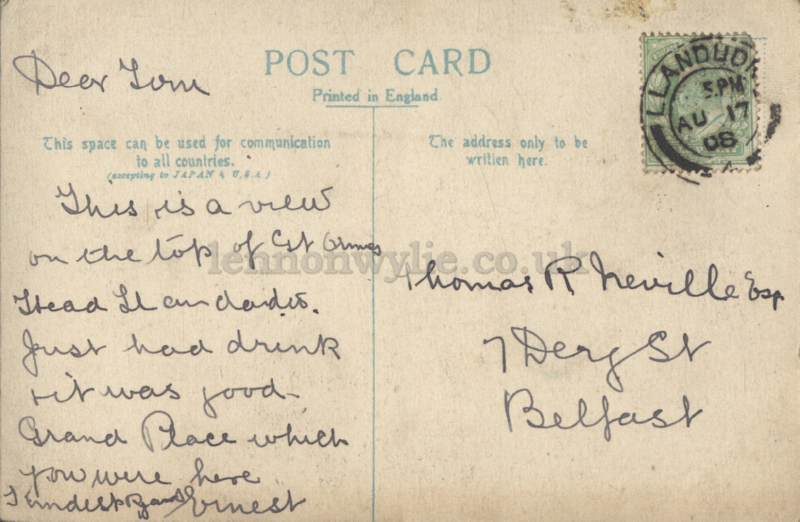 POST CARD
Printed in England
Dear Tom
This space can be used for communication
to all countries.
(excepting to JAPAN & U.S.A.)
This is a view
on the top of Gt Ormes
Head Llandudno.
Just had drink
& it was good
Grand Place which
you were here
Ernest
The address only to be
written here.
Thomas R Neville Esq
7 Derg St
Belfast
LLANDUDNO
5.PM
AU 17
08
lennonwylie.co.uk